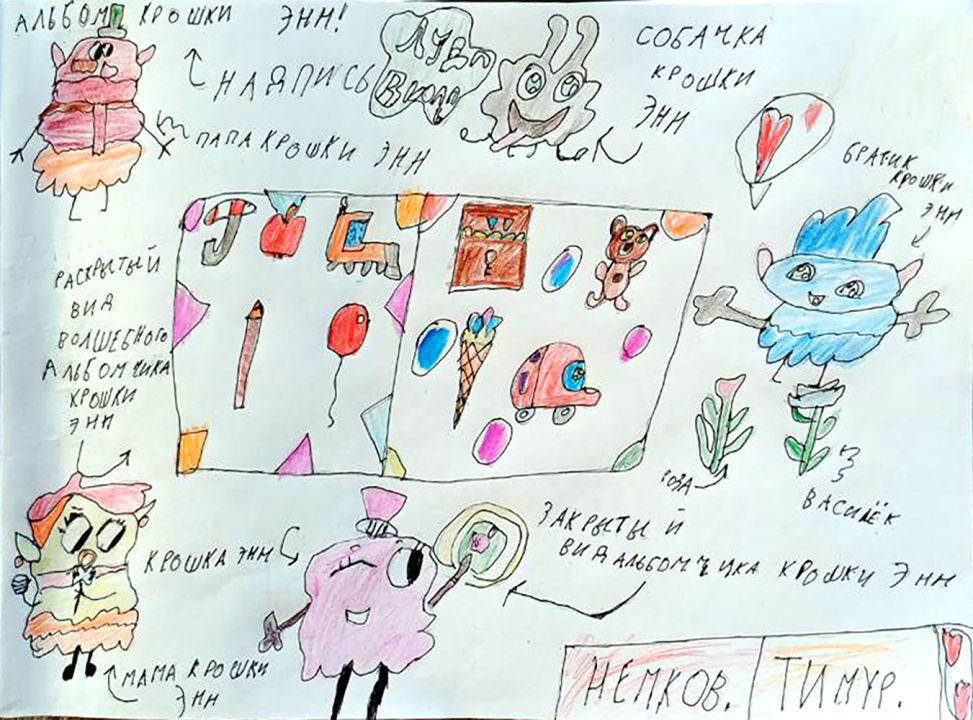 АЛЬБОМ КРОШКИ ЭНН!
НАДПИСЬ
ПАПА КРОШКИ ЭНН
СОБАЧКА
КРОШКИ
ЭНН
БРАТИК
КРОШКИ
ЭНН
РАСКРЫТЫЙ
ВИД
ВОЛШЕБНОГО
АЛЬБОМЧИКА
КРОШКИ
ЭНН
РОЗА
ВАСИЛЁК
КРОШКА ЭНН
ЗАКРЫТЫЙ
ВИД АЛЬБОМЧИКА КРОШКИ ЭНН
МАМА КРОШКИ
ЭНН
НЕМКОВ. ТИМУР.